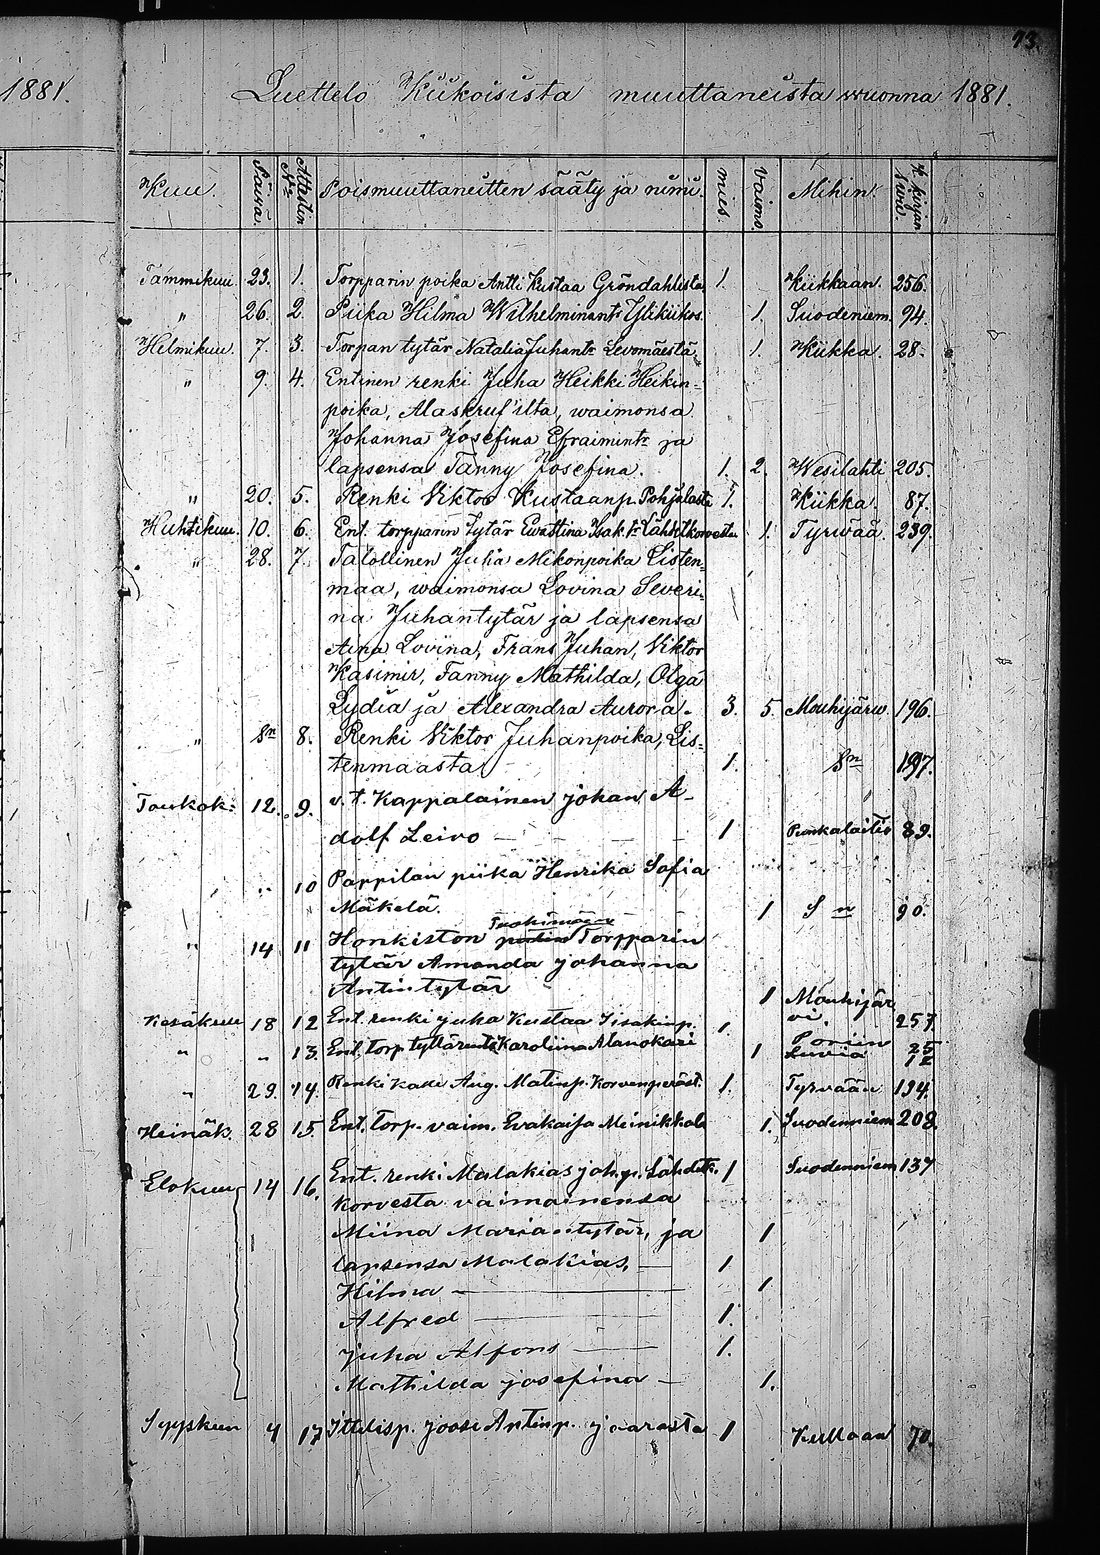 93.
1881.
Luettelo Kiikoisista muuttaneista wuonna 1881.
Kuu. Päivä. Attestin No Poismuuttaneitten sääty ja nimi. mies. vaimo. Mihin. K. kirjan Sivu.
Tammikuu 23. 1. Torpparin poika Antti Kustaa Gröndahlista 1. Kiikkaan. 256.
" 26. 2. Piika Hilma Wilhelminant. Ylikiikos. 1. Suodeniem. 94.
Helmikuu. 7. 3. Torpan tytär Natalia Juhantr Levomäestä 1. Kiikka. 28.
" 9. 4. Entinen renki Juha Heikki Heikin-
poika, Alaskruf'ilta, waimonsa
Johanna Josefina Efraimintr ja
lapsensa Fanny Josefina. 1. 2. Wesilahti 205.
" 20. 5. Renki Viktor Kustaanp. Pohjalasta 1. Kiikka. 87.
Huhtikuu. 10. 6. Ent. torpparin tytär Evastina Isak tr Lähdekorvesta 1. Tyrwää. 239.
" 28. 7. Talollinen Juha Mikonpoika Listen-
maa, waimonsa Lovina Severi-
na Juhantytär ja lapsensa
Aina Lovina, Frans Juhan, Viktor
Kasimir, Fanny Mathilda, Olga
Lydia ja Alexandra Aurora. 3. 5. Mouhijärw. 196.
" Sn 8. Renki Viktor Juhanpoika, Lis-
tenmaasta 1. Sn 197.
Toukok: 12. 9. v.t. Kappalainen johan A-
dolf Leivo 1 Punkalaitio 89.
" 10 Pappilan piika Henrika Sofia
Mäkelä. 1 Sn 90.
" 14 11 Honkiston Torpparin
tytär Amanda johanna
Antintytär 1 Mouhijär
vi. 257
Kesäkuu 18 12 Ent. renki juha Kustaa Iisakinp. 1. Porin
" " 13. Ent. torp. tyttären Karoliina Alanokari 1 Luvia 25
12
" 29. 14. Renki Kalle Aug. Matinp. Korvenperäst. 1. Tyrvään 194.
Heinäk. 28 15. Ent. Torp. vaim. Evakaisa Meinikkala 1. Suodenniem 208.
Elokuu 14 16. Ent. renki Malakias joh.p. Lähdek. 1 Suodenniem 137
korvesta vaimoinensa
Miina Mariantytär, ja 1
lapsensa Malakias, 1
Hilma 1
Alfred 1.
juha Alfons 1.
Mathilda josefina 1.
Syyskuu 4 17 Ittelisp. joose Antinp. jaarasta 1 Kullaan 70.